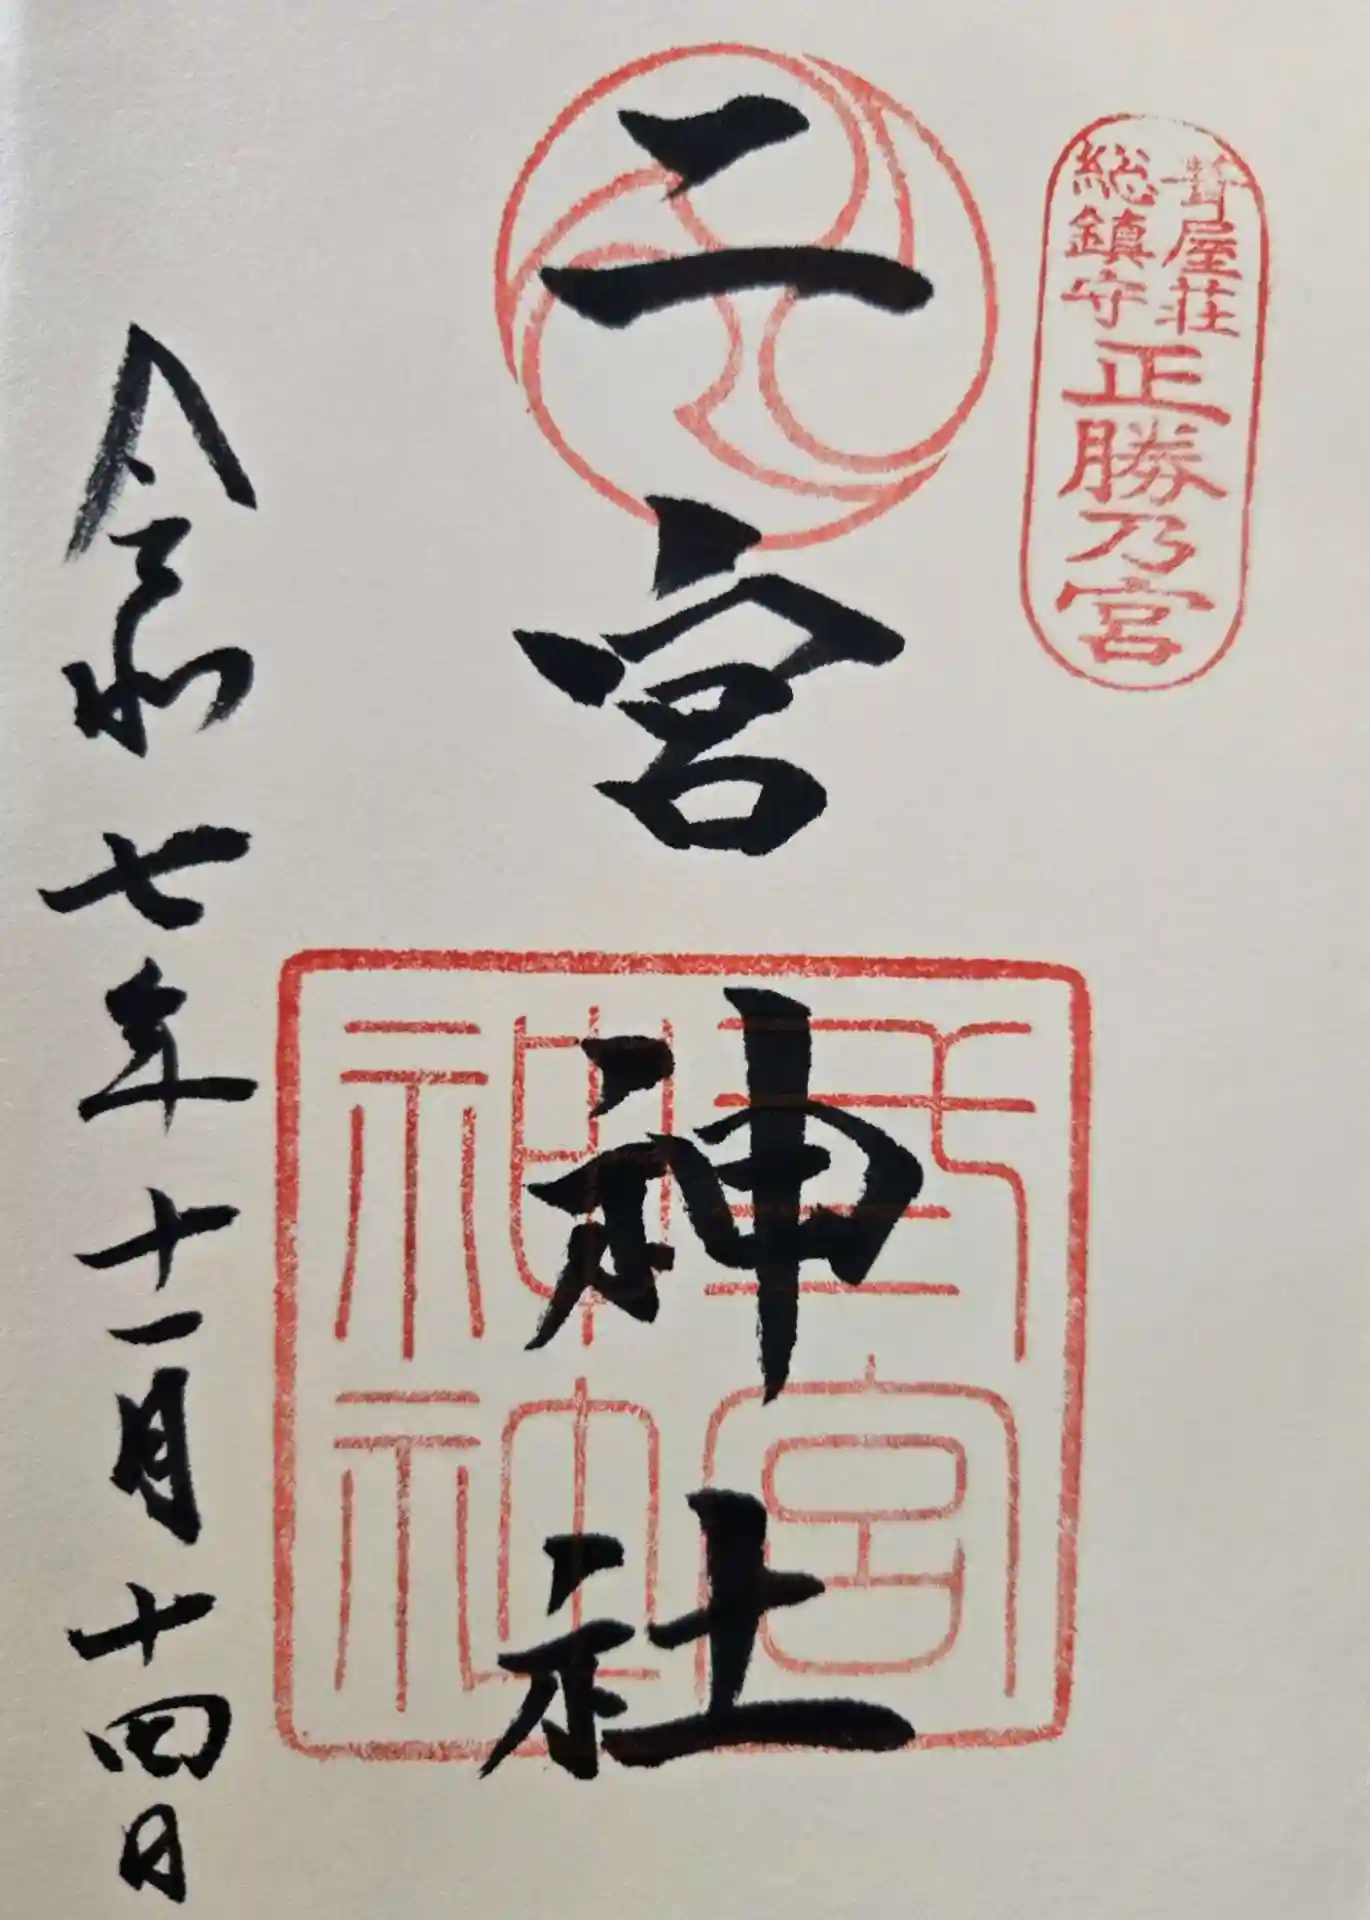 葺屋荘
総鎮守
正勝乃宮
二宮神社
令和七年十一月十四日